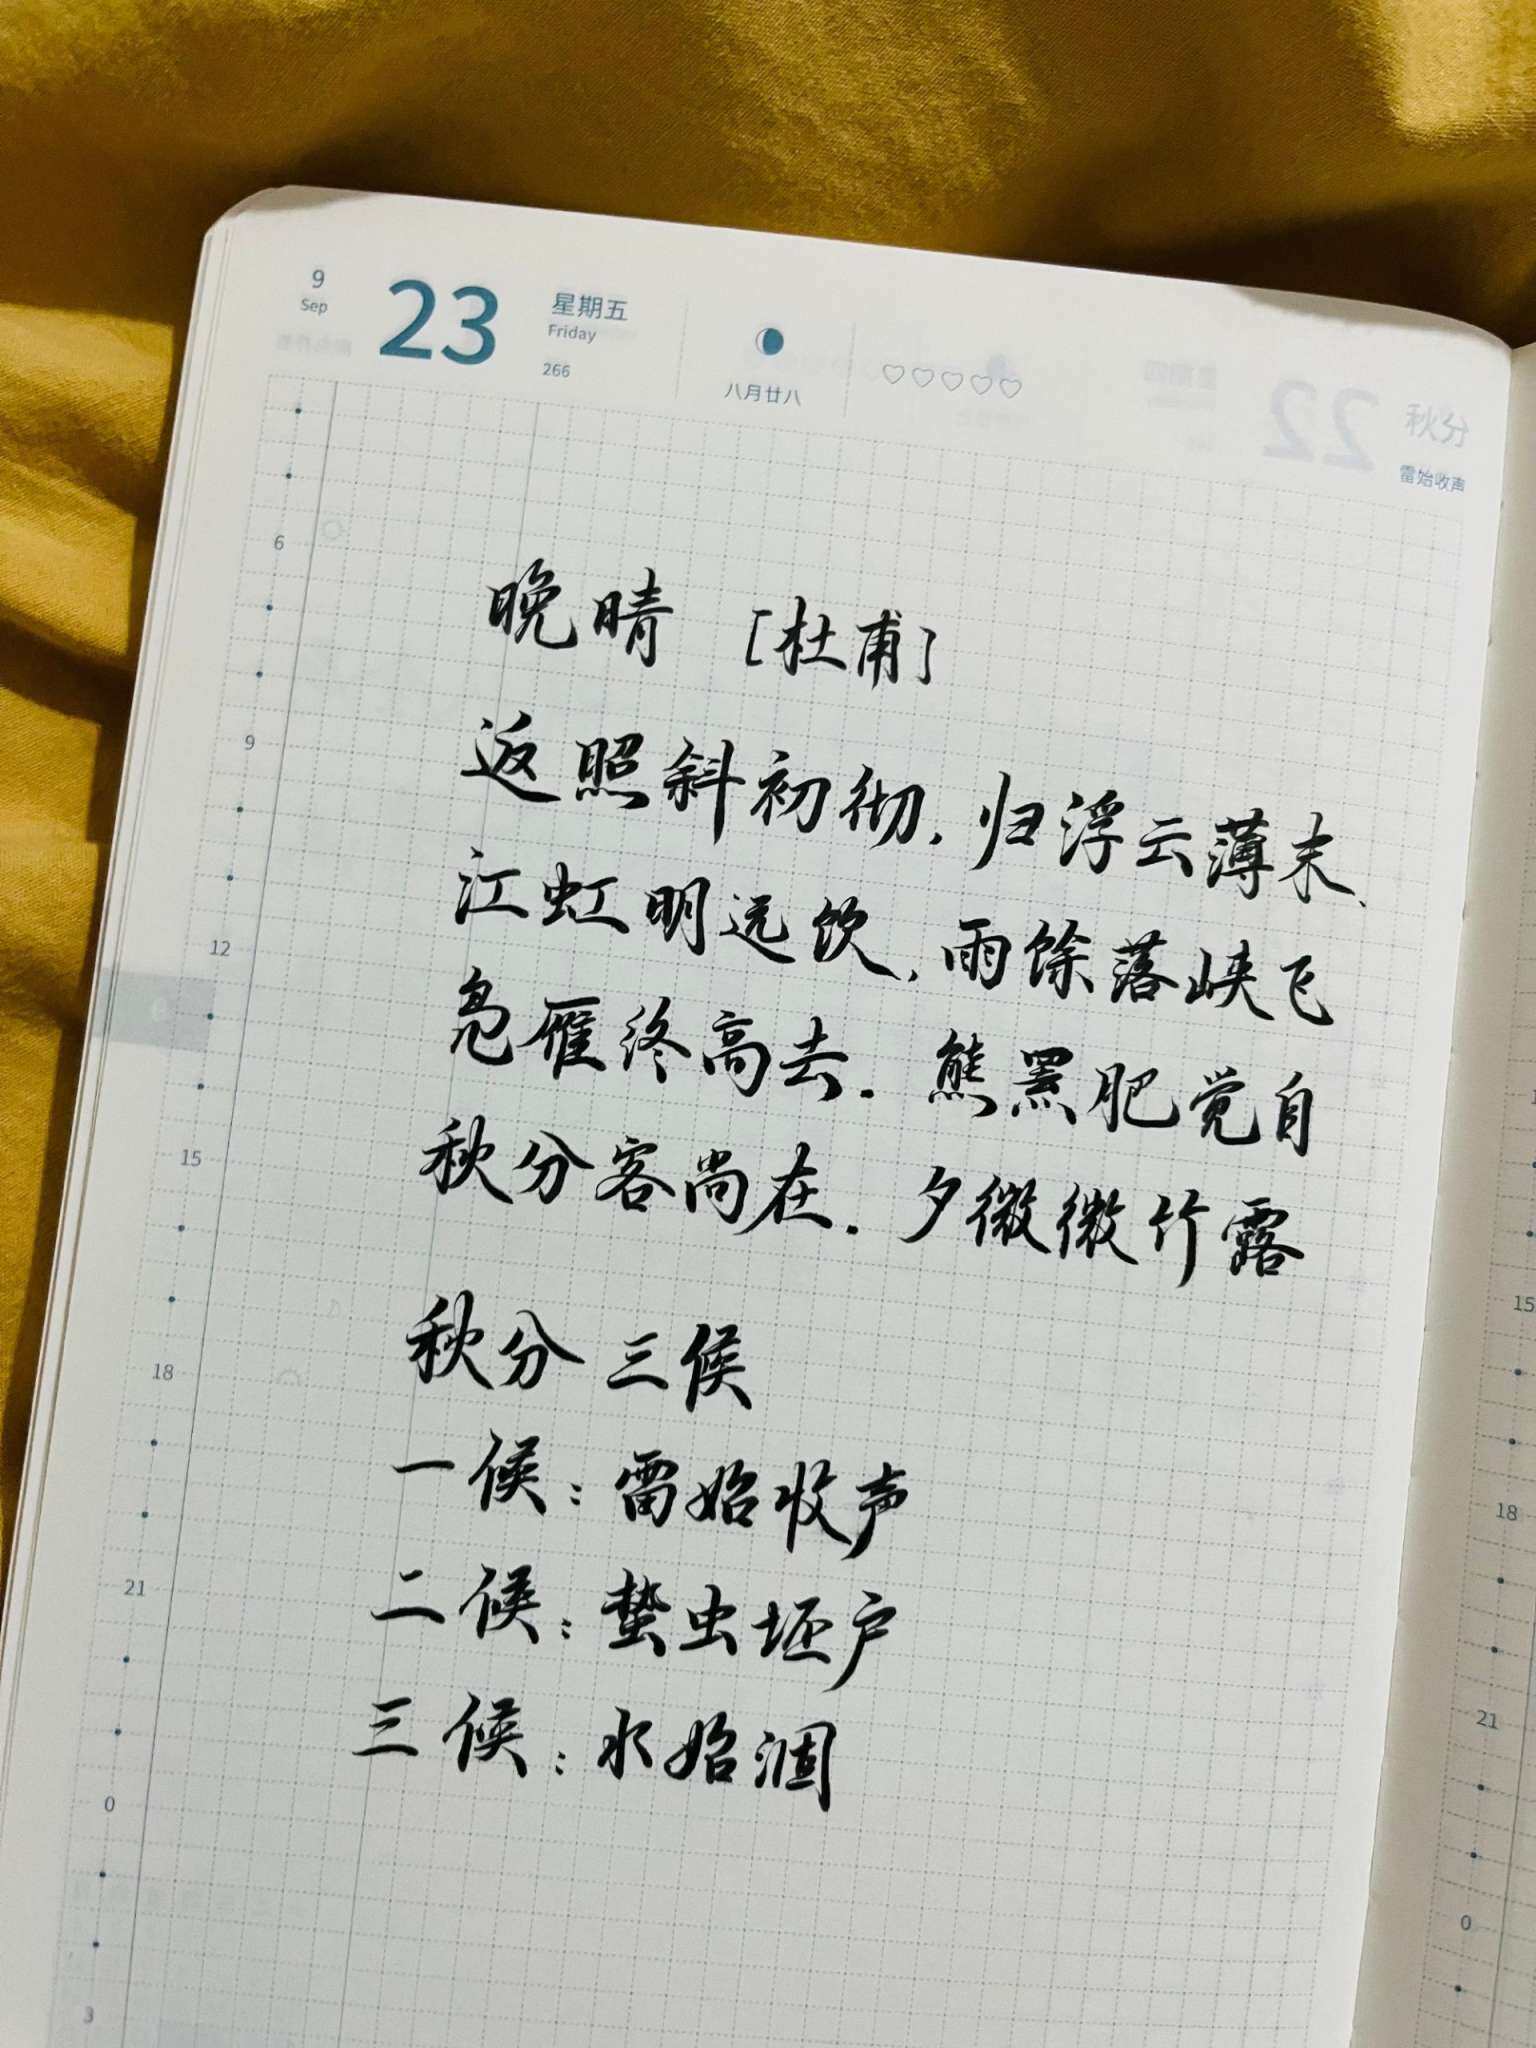 9
Sep
23
星期五
Friday
266
八月廿八
秋分
雷始收声
晚晴 [杜甫]
返照斜初彻,归浮云薄未、
江虹明远饮,雨馀落峡飞
凫雁终高去.熊罴肥觉自
秋分客尚在.夕微微竹露
秋分三候
一候:雷始收声
二候:蛰虫坯户
三候:水始涸
6
9
12
15
18
21
0
3
15
18
21
0